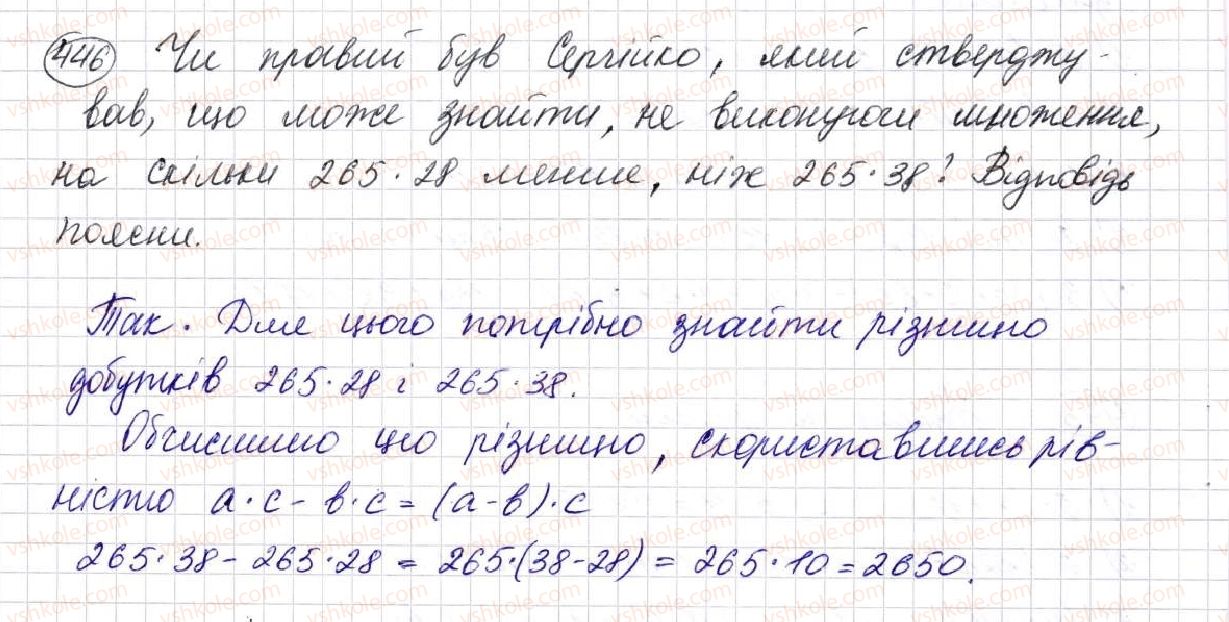 446 Чи правий був Сергійко, який стверджу-
вав, що може знайти, не виконуючи множення,
на скільки 265·28 менше, ніж 265·38? Відповідь
поясни.
Так. Для цього потрібно знайти різницю
добутків 265·28 і 265·38.
Обчислимо цю різницю, скориставшись рів-
ністю a·c - b·c = (a-b)·c
265·38 - 265·28 = 265·(38-28) = 265·10 = 2650.